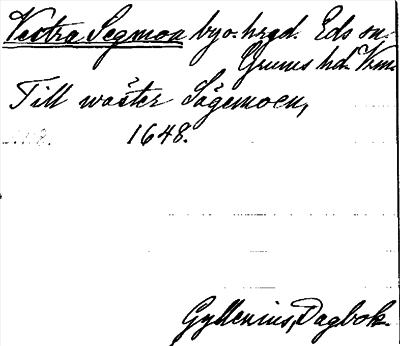 Vestra Segmon by o. hrgd. Eds sn.
Grums hd. Vrm.
Till wäster Sägemoen,
1648.
Gyllenius, Dagbok.